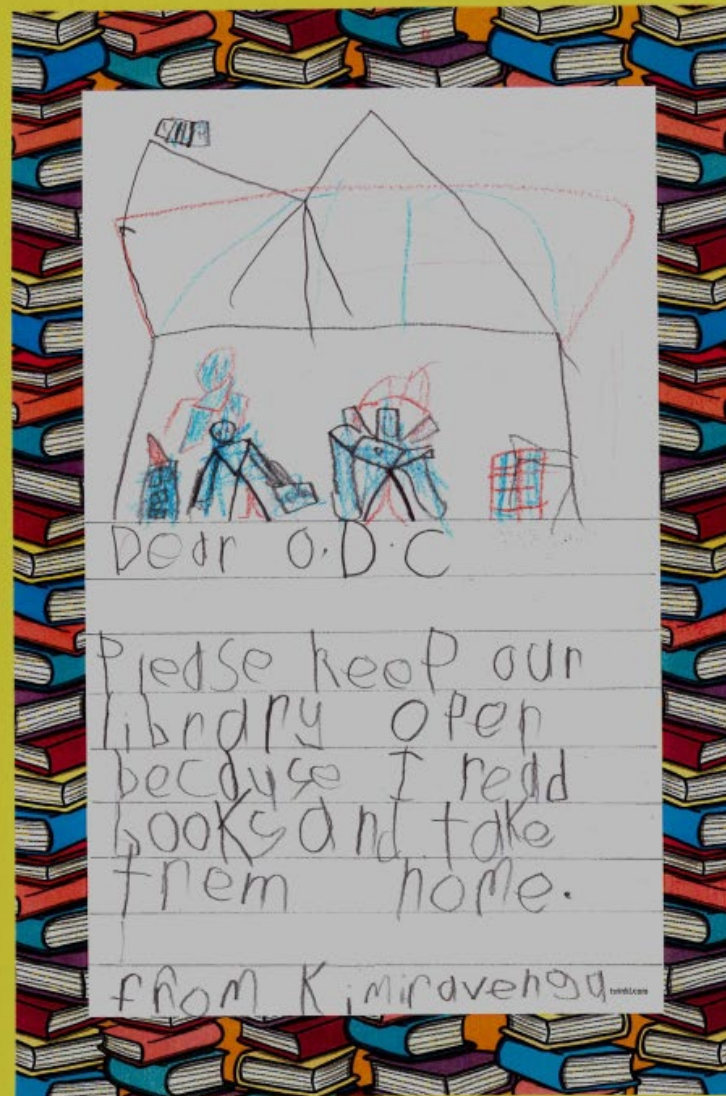 Dear O.D.C
Please keep our
library open
because I read
books and take
them home.
from Kimiravenga
twinkl.com